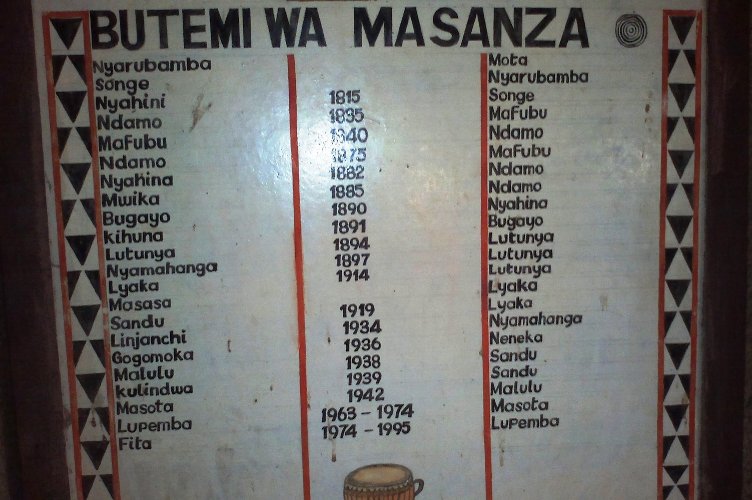 BUTEMI WA MASANZA
Nyarubamba Mota
Songe Nyarubamba
Nyahini 1815 Songe
Ndamo 1835 MaFubu
MaFubu 1840 Ndamo
Ndamo 1875 MaFubu
Nyahina 1882 Ndamo
Mwika 1885 Ndamo
Bugayo 1890 Nyahina
Kihuna 1891 Bugayo
Lutunya 1894 Lutunya
Nyamahanga 1897 Lutunya
Lyaka 1914 Lutunya
Masasa Lyaka
Sandu 1919 Lyaka
Linjanchi 1934 Nyamahanga
Gogomoka 1936 Neneka
Malulu 1938 Sandu
Kulindwa 1939 Sandu
Masota 1942 Malulu
Lupemba 1963 - 1974 Masota
Fita 1974 - 1995 Lupemba